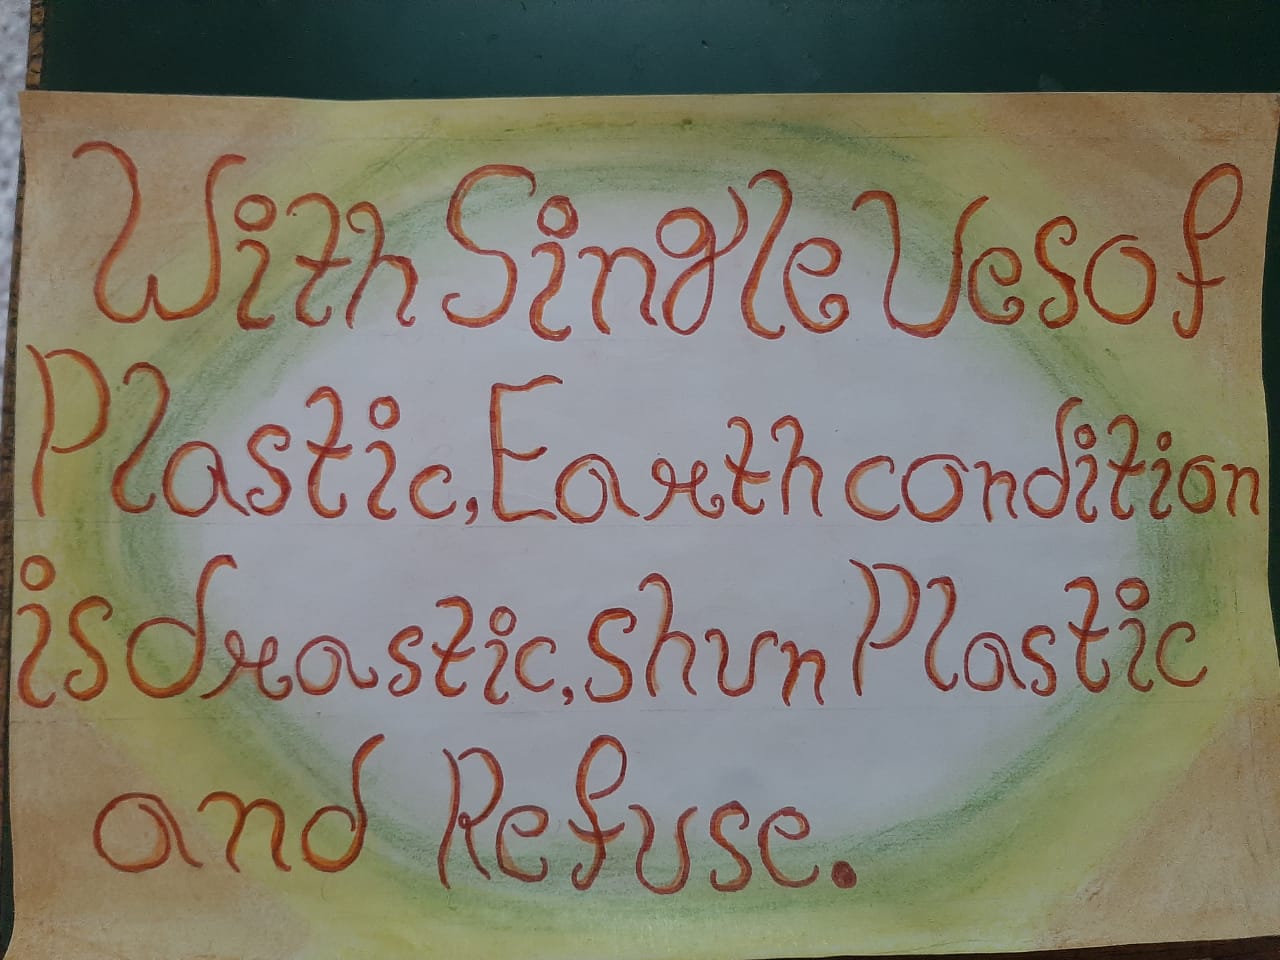 With Single Ues of
Plastic, Earth condition
is drastic, shun Plastic
and Refuse.